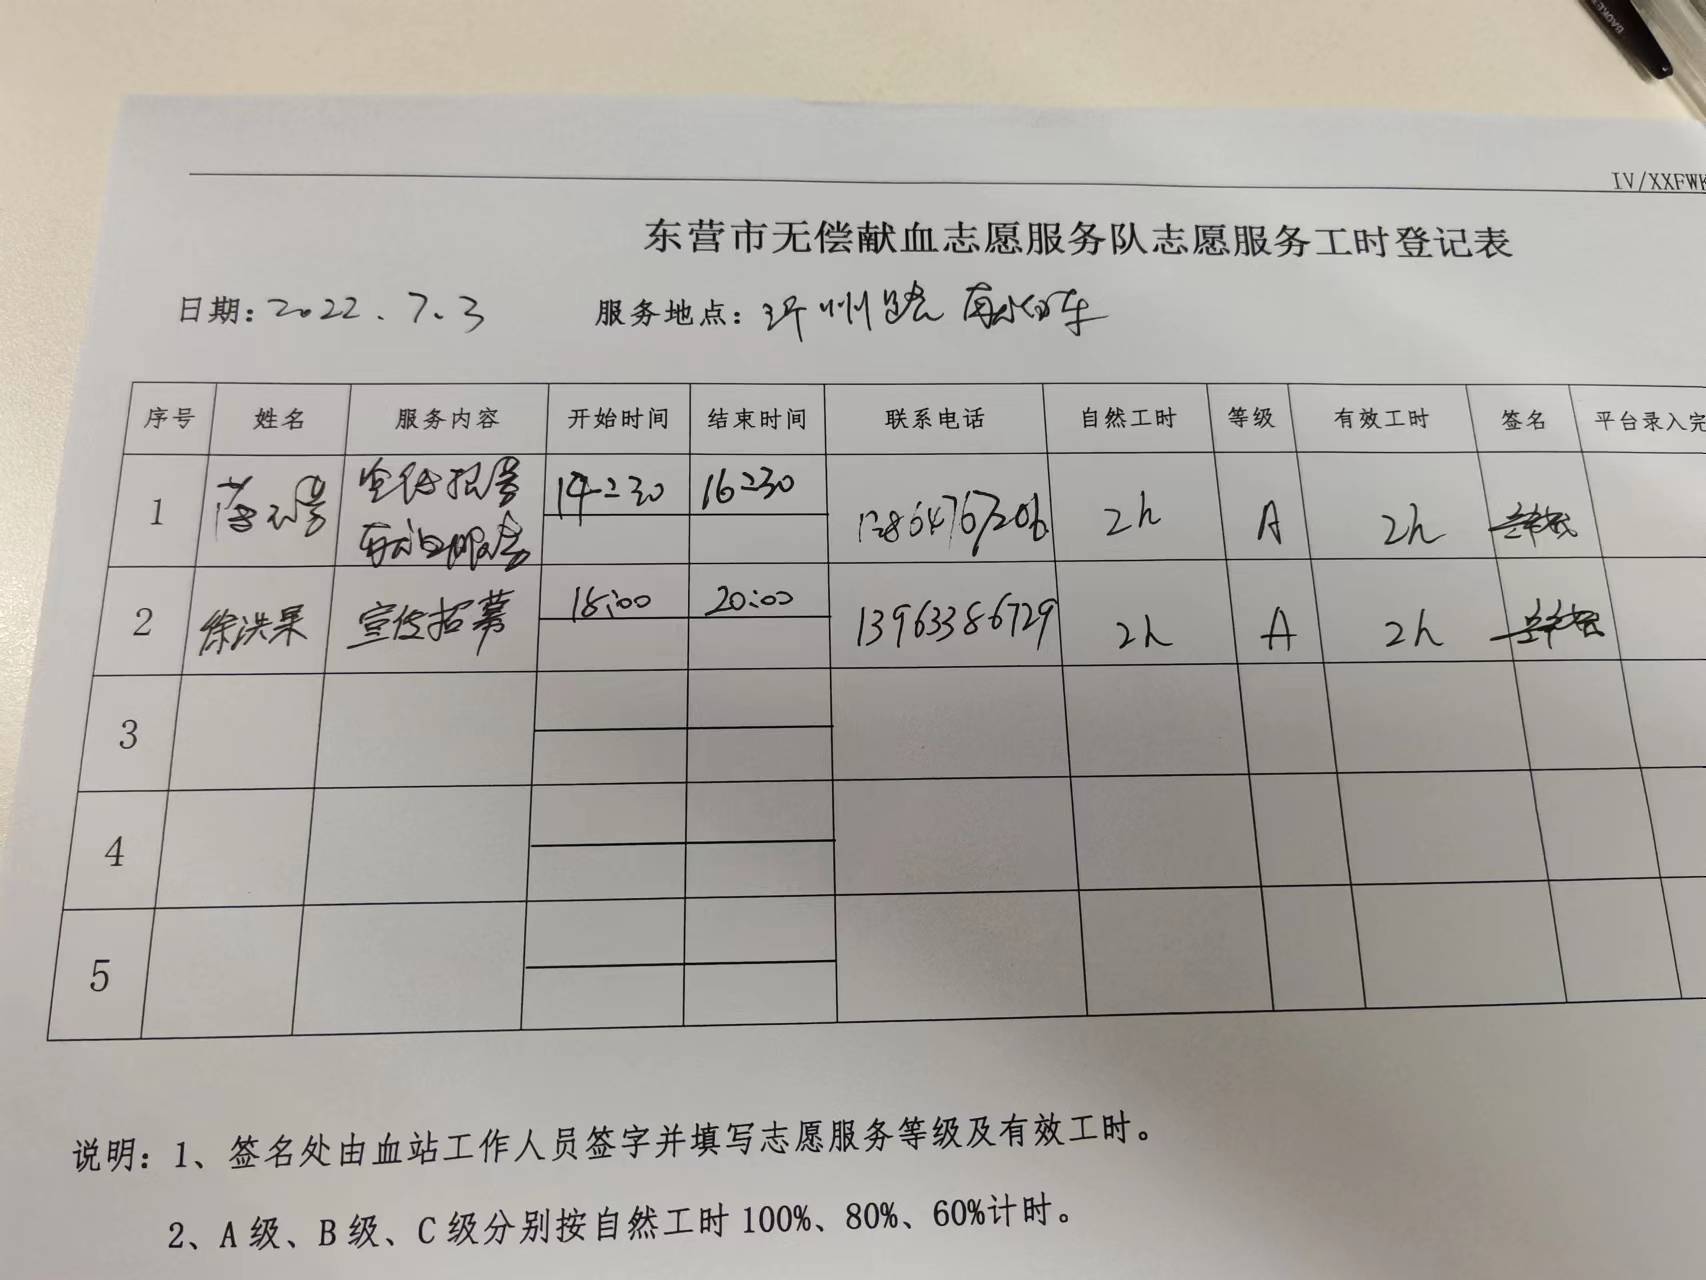 IV/XXFWK
东营市无偿献血志愿服务队志愿服务工时登记表
日期: 2022.7.3 服务地点: 沂州路 献血车
序号 姓名 服务内容 开始时间 结束时间 联系电话 自然工时 等级 有效工时 签名 平台录入完
1 宣传招募 14:30 16:30 2h A 2h
献血服务
2 徐洪果 宣传招募 18:00 20:00 13963386729 2h A 2h
3
4
5
说明: 1、签名处由血站工作人员签字并填写志愿服务等级及有效工时。
2、A 级、B 级、C 级分别按自然工时 100%、80%、60%计时。